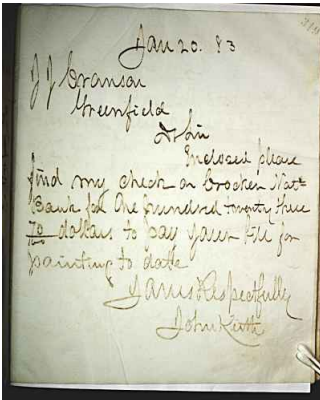 Jan 20. 83
J J Cranson
Greenfield
D Sir
Enclosed please
find my check on Crocker Natl
Bank for One hundred twenty three
70/100 dollars to pay your bill for
painting to date
Yours Respectfully
John Keith